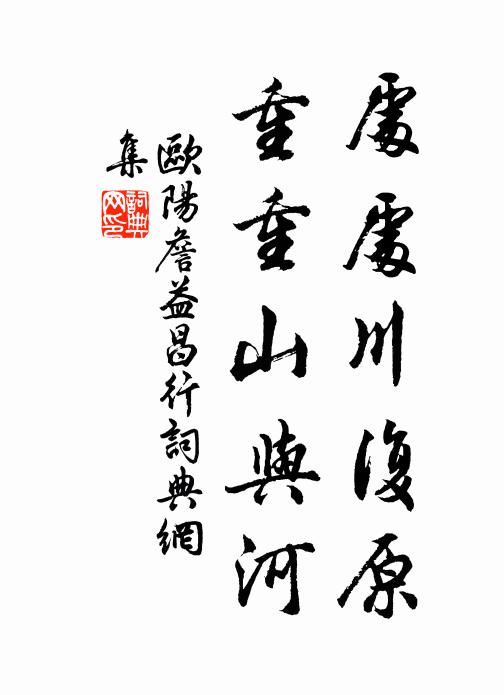 處處川復原
重重山與河
歐陽詹益昌行詞典網
集
詞典
网印